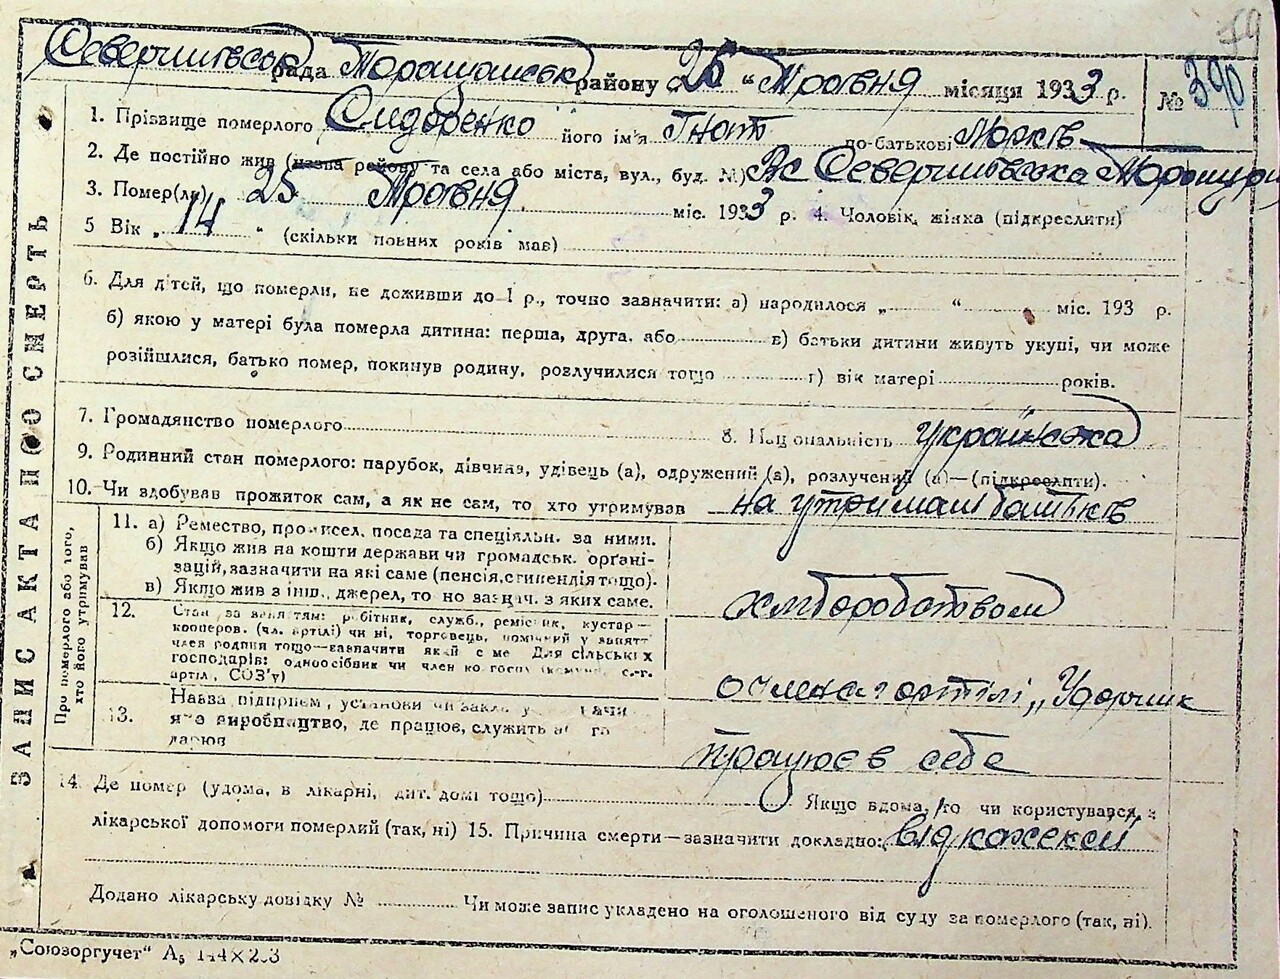 79
рада Торащанськ району „25“ Травня місяця 1933 р. № 390
1. Прізвище померлого Сидоренко його ім'я Гнат по-батькові Марків
2. Де постійно жив (назва району та села або міста, вул., буд. №) Вс
3. Помер(ла) 25 Травня міс. 1933 р. 4. Чоловік, жінка (підкреслити)
5 Вік „14“ (скільки повних років мав)
6. Для дітей, що померли, не доживши до 1 р., точно зазначити: а) народилося „ “ міс. 193 р.
б) якою у матері була померла дитина: перша, друга, або в) батьки дитини живуть укупі, чи може
розійшлися, батько помер, покинув родину, розлучилися тощо г) вік матері років.
7. Громадянство померлого 8. Національність українська
9. Родинний стан померлого: парубок, дівчина, удівець (а), одружений (а), розлучений (а)—(підкреслити).
10. Чи здобував прожиток сам, а як не сам, то хто утримував на утримані батьків
ЗАПИС АКТА ПРО СМЕРТЬ
Про померлого або того, хто його утримував
11. а) Ремество, промисел, посада та спеціяльн. за ними.
б) Якщо жив на кошти держави чи громадськ. органі-
зацій, зазначити на які саме (пенсія, стипендія тощо).
в) Якщо жив з інш. джерел, то но зазнач. з яких саме.
хліборобством
12. Стан за заняттям: робітник, служб., ремісник, кустар—
кооперов. (чл. артілі) чи ні, торговець, помічний у занятт
член родини тощо—зазначити який саме Для сільських
господарів: одноосібник чи член колгоспу
артіл, СОЗ'у)
артілі „Ударник
13. Назва підприєм., установи чи закладу
виробництво, де працює, служить
працює в себе
14. Де помер (удома, в лікарні, дит. домі тощо) Якщо вдома, то чи користувався
лікарської допомоги померлий (так, ні) 15. Причина смерти—зазначити докладно: від кахексії
Додано лікарську довідку № Чи може запис укладено на оголошеного від суду за померлого (так, ні).
„Союзоргучет“ А₅ 144×203